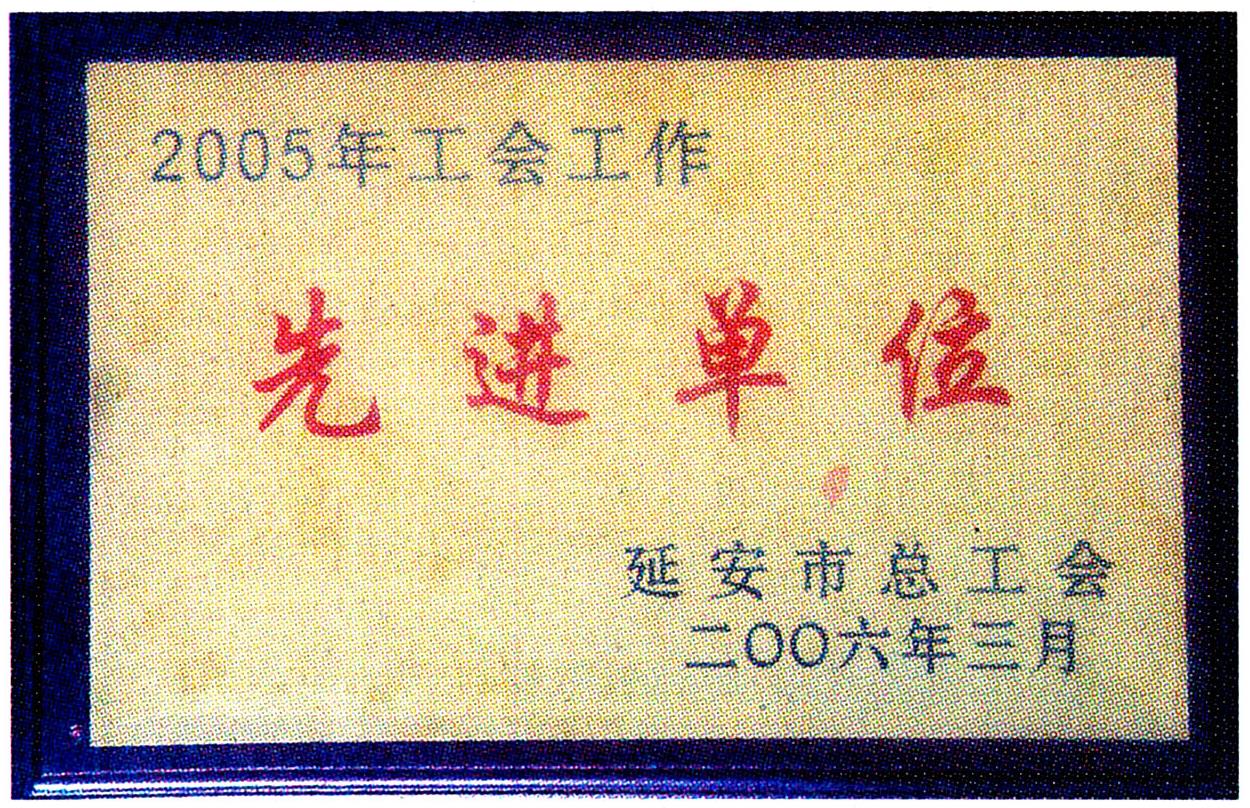 2005年工会工作
先进单位
延安市总工会
二〇〇六年三月